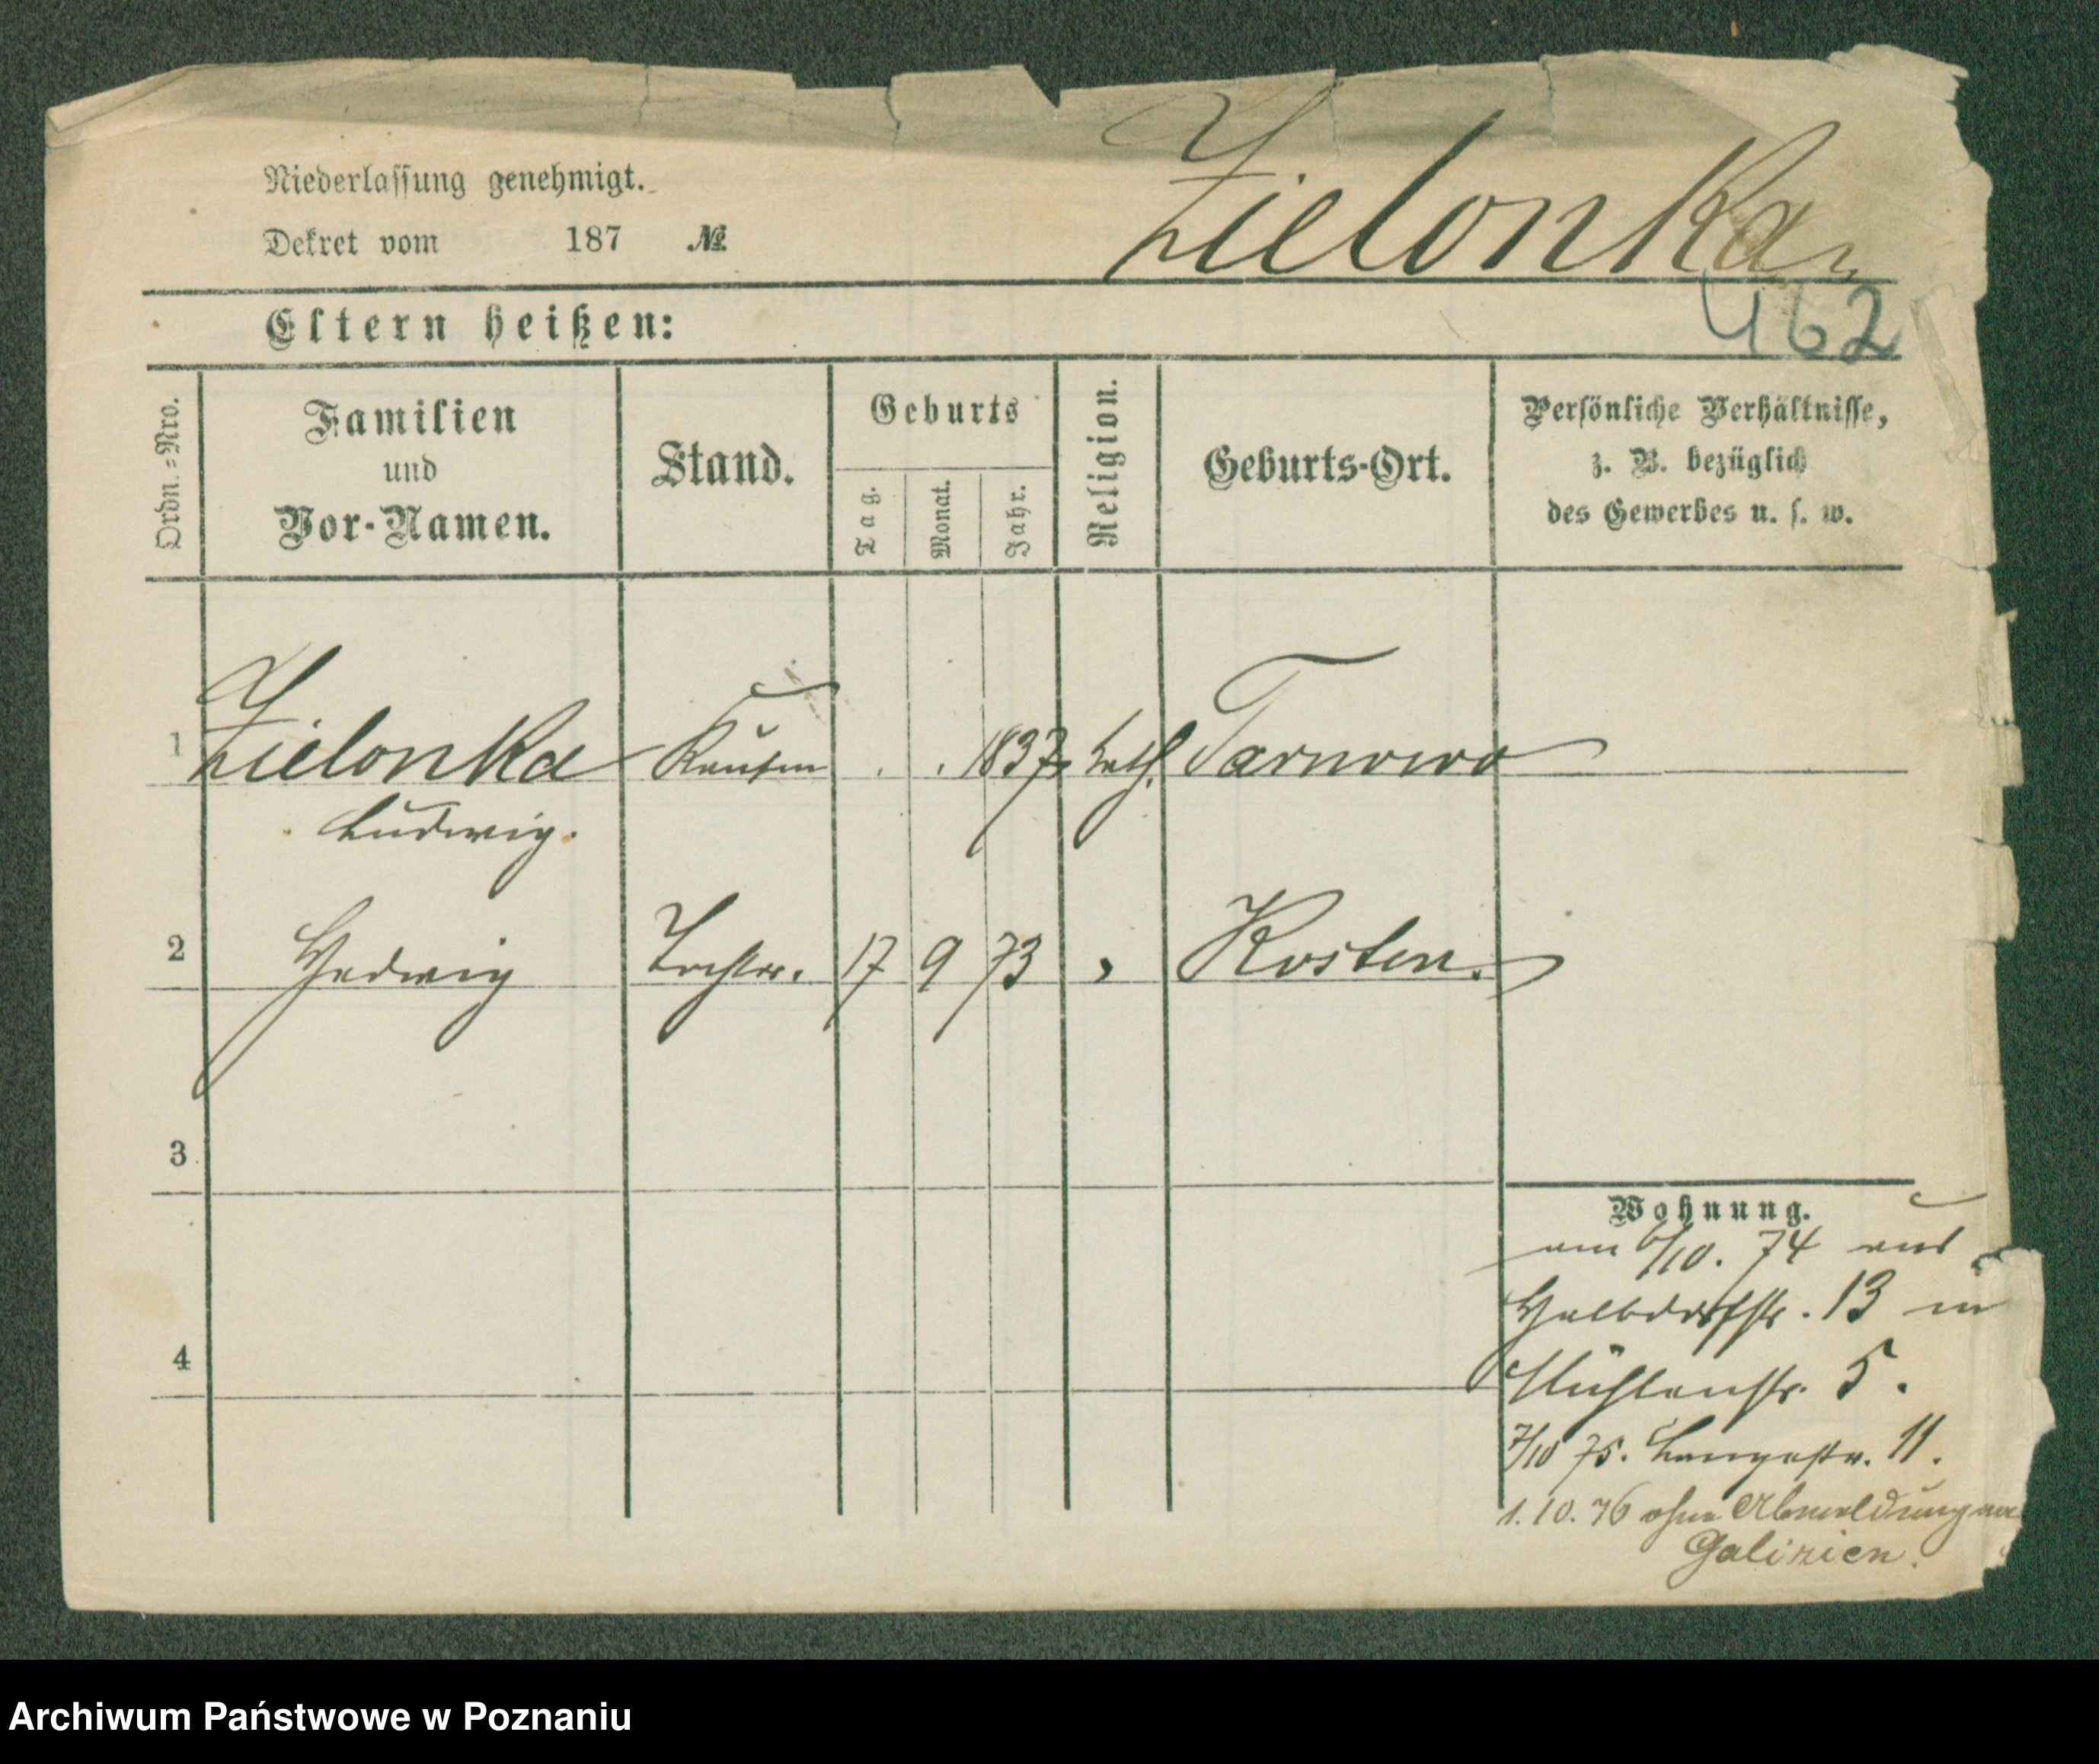 Niederlassung genehmigt.
Dekret vom 187 №
Zielonka
462
Eltern heißen:
Ordn.=Nro.
Familien
und
Vor-Namen.
Stand.
Geburts
Tag.
Monat.
Jahr.
Religion.
Geburts-Ort.
Persönliche Verhältnisse,
z. B. bezüglich
des Gewerbes u. s. w.
1 Zielonka Kaufm 1837 kath. Tarnowo
Ludwig.
2 Hedwig Tochter. 17 9 73 " Kosten.
3
4
Wohnung.
am 6/10. 74 aus
Halbdorfstr. 13 in
Mühlenstr. 5.
7/10 75. Langestr. 11.
1. 10. 76 ohne Abmeldung
Galizien.
Archiwum Państwowe w Poznaniu